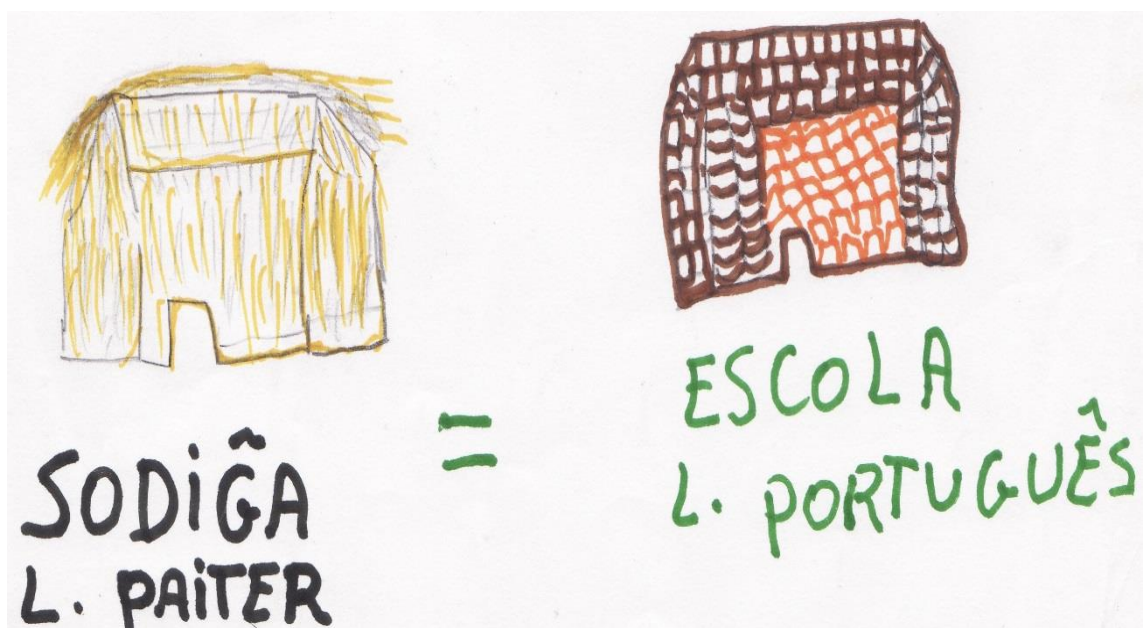 SODiĜA
L. PAiTER
=
ESCOLA
L. PORTUGUÊS